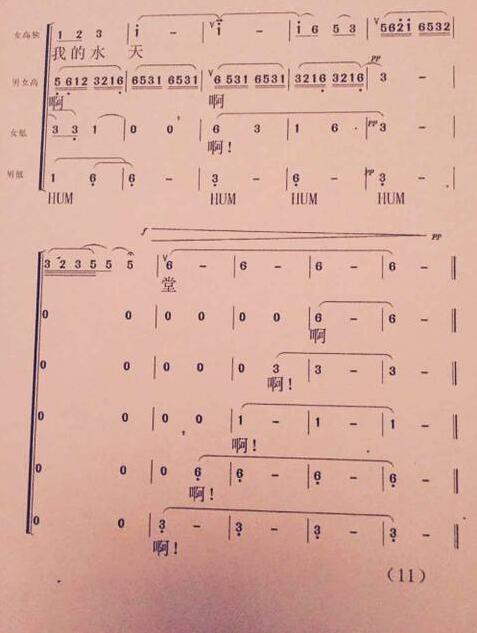 女高独 1 2 3 | i - | i - | i 6 5 3 | 562i 6532 |
我的水 天
男女高 5612 3216 | 6531 6531 | 6531 6531 | 3216 3216 | pp 3 - |
啊 啊
女低 3 3 1 | 0 0 | 6 3 | 1 6 . | pp 3 - |
啊!
男低 1 6 | 6 - | 3 - | 6 - | pp 3 - |
HUM HUM HUM HUM
f pp
3 2 3 5 5 5 | 6 - | 6 - | 6 - | 6 - ||
堂
0 0 | 0 0 | 0 0 | 6 - | 6 - ||
啊
0 0 | 0 0 | 0 3 | 3 - | 3 - ||
啊!
0 0 | 0 0 | 1 - | 1 - | 1 - ||
啊!
0 0 | 0 6 | 6 - | 6 - | 6 - ||
啊!
0 0 | 3 - | 3 - | 3 - | 3 - ||
啊!
(11)